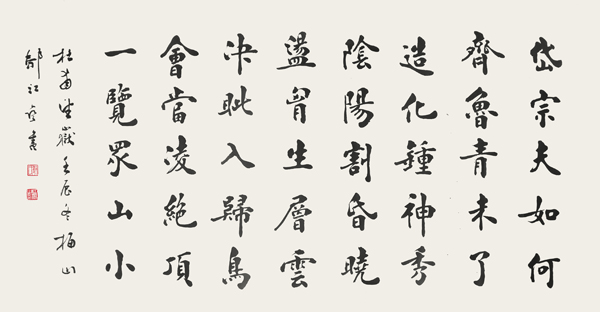 岱宗夫如何
齊魯青未了
造化鍾神秀
陰陽割昏曉
盪胷生層雲
決眦入歸鳥
會當凌絕頂
一覽眾山小
杜甫望嶽壬辰冬梅山
江書